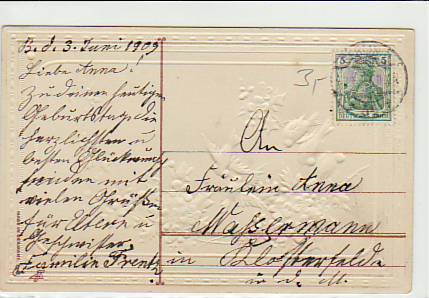 B. d. 3. Juni 1909
Liebe Anna!
Zu deinem heutigen
Geburtstag die
herzlichsten u
besten Glückwün
vielen Grüßen
für Eltern u
Geschwister
Familie Frentz
3,-
5 5
An
Fräulein Anna
Wassermann
in Klosterfelde
i. d. M.